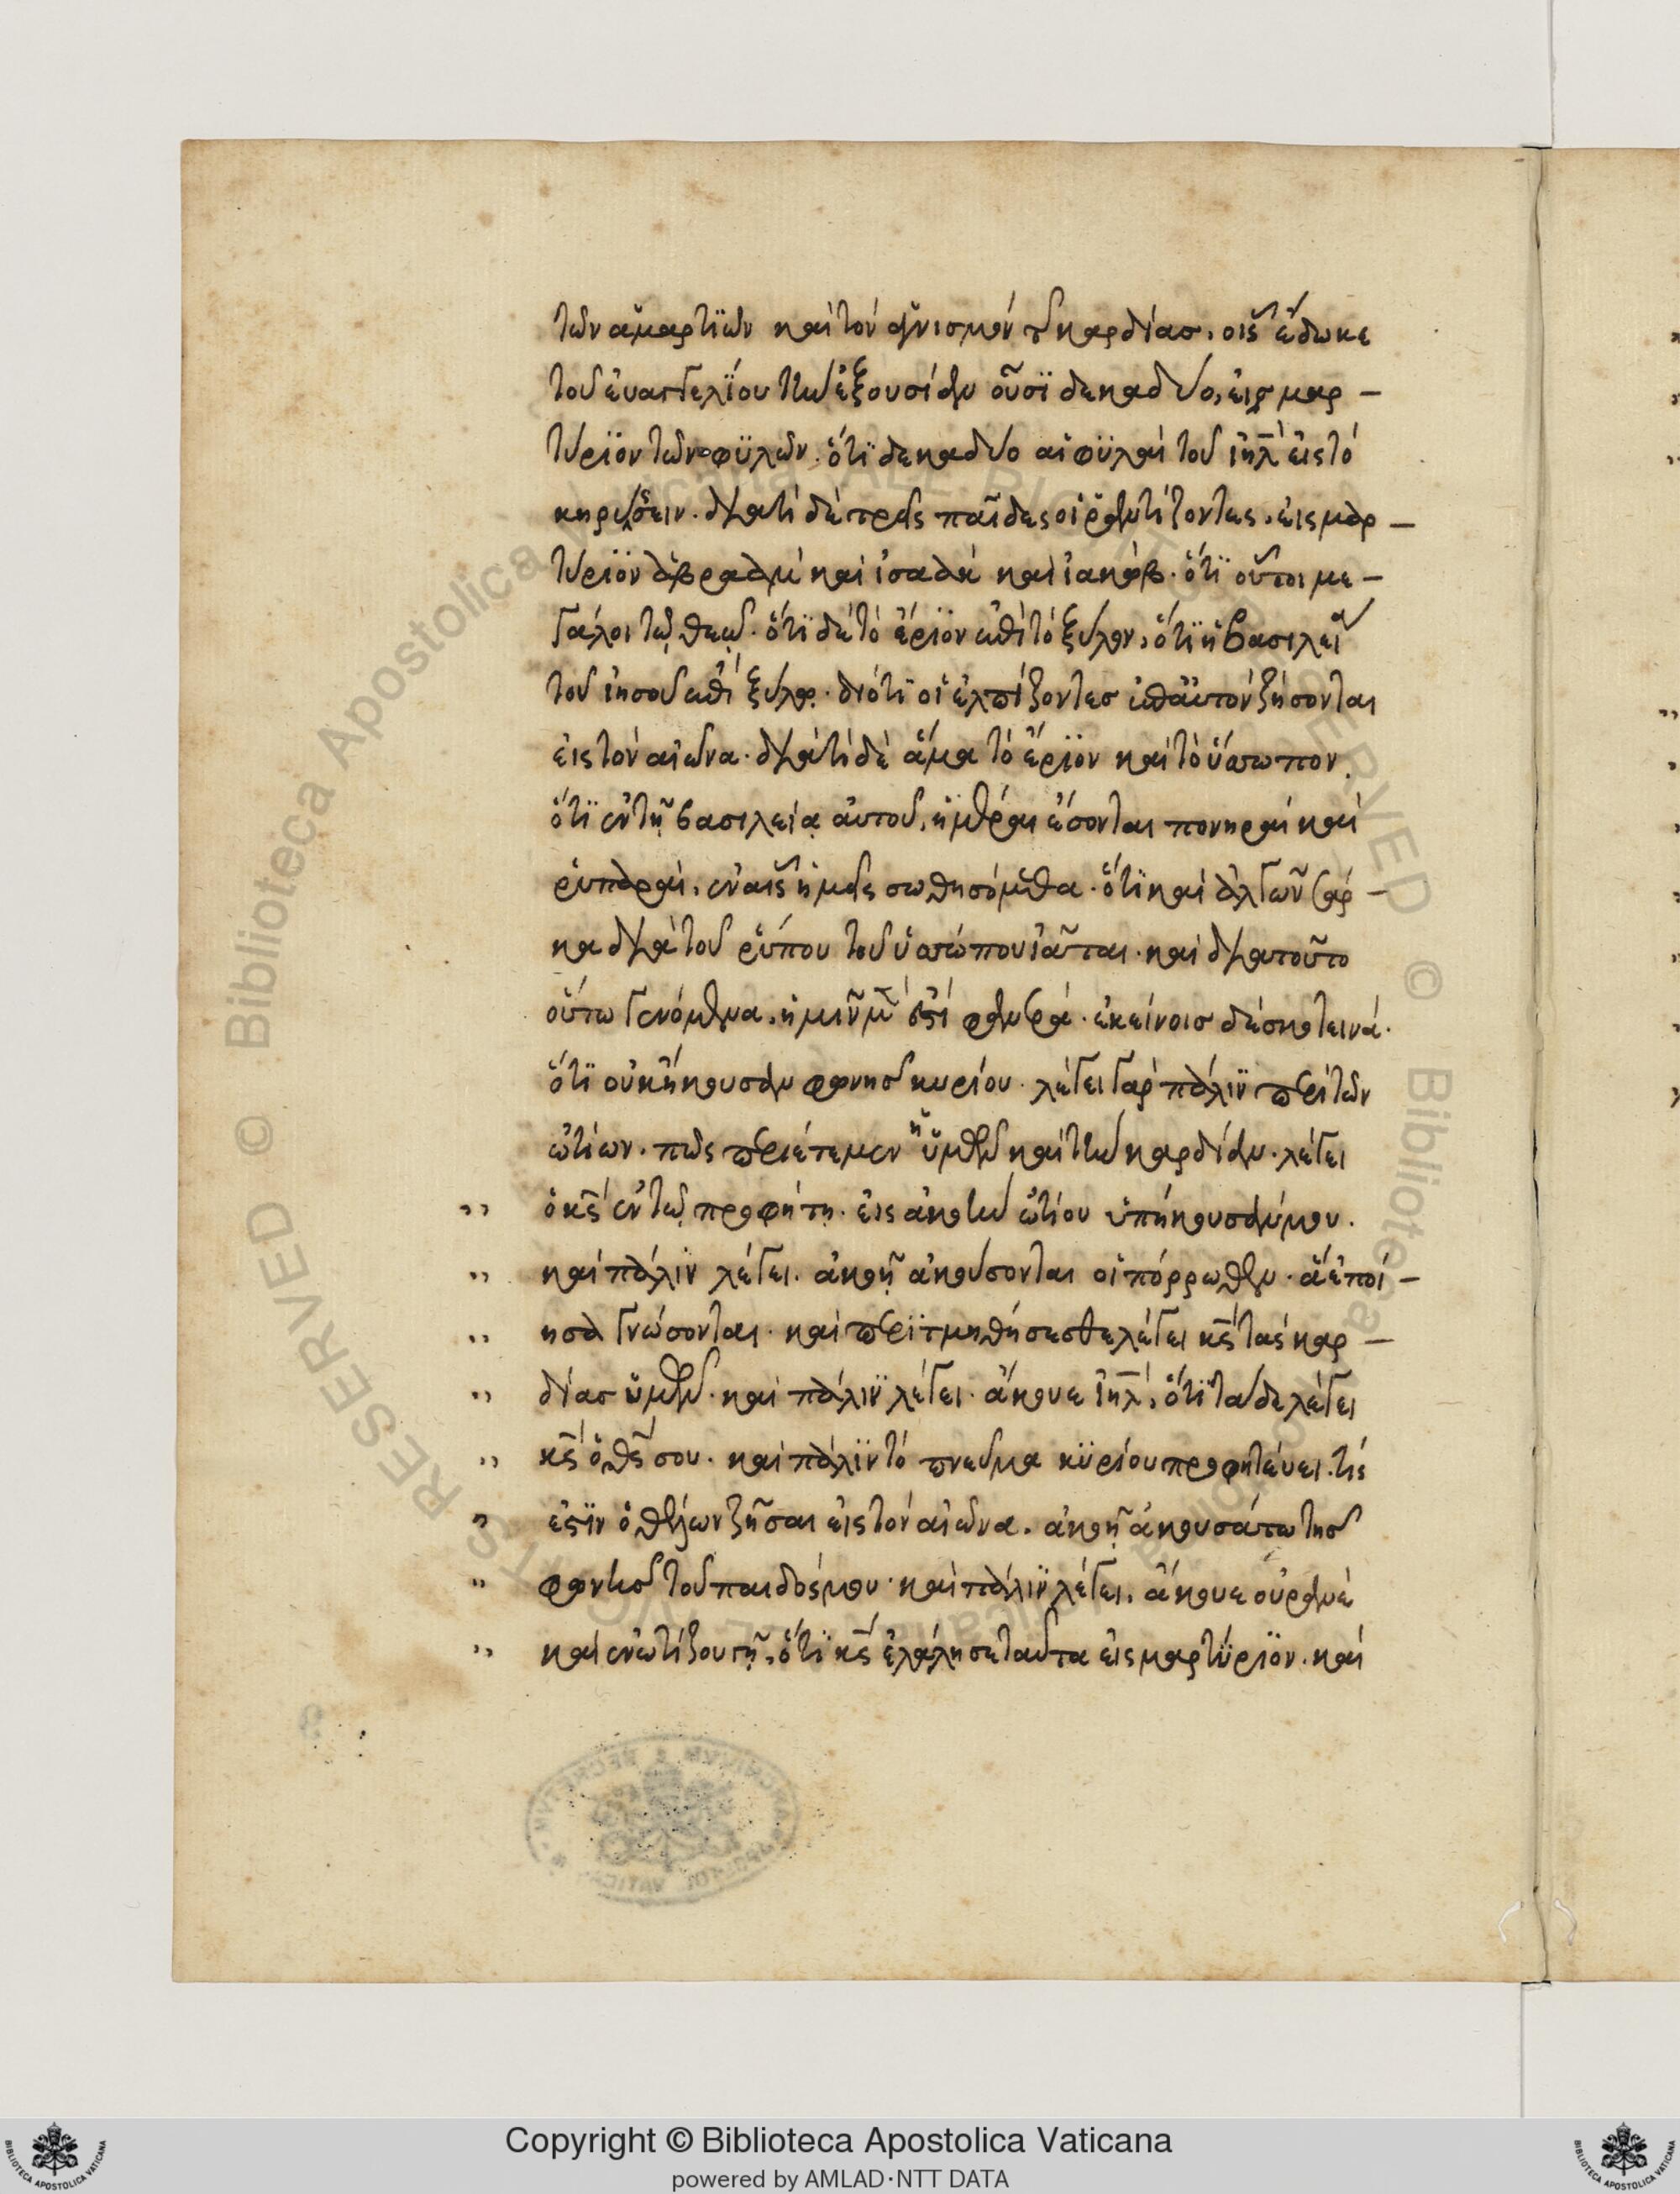 τῶν ἁμαρτϊῶν καὶ τὸν ἁγνισμὸν τ καρδίας, οἷς ἔδωκε
τοῦ ἐυαγγελϊου τὴν ἐξουσίαν οὖσϊ δεκαδύο, εἰς μαρ –
τύριϊον τῶν φϋλῶν. ὅτϊ δεκαδύο αἱ φϋλαὶ τοῦ ἰηλ εἰς τὸ
κηρύσσειν. διατί δὲ τρεῖς παῖδες οἱ ῥαντίζοντες, εἰς μαρ –
τύριον ἀβραὰμ καὶ ἰσαὰκ καὶ ἰακώβ. ὅτϊ οὗτοι με –
γάλοι τῷ θεῷ. ὅτϊ δὲ τὸ ἔριον ἐπὶ τὸ ξύλον, ὅτϊ ἡ βασιλεία
τοῦ ἰησοῦ ἐπὶ ξύλῳ. διότϊ οἱ ἐλπίζοντες ἐπ' αὐτὸν ζήσονται
εἰς τὸν αἰῶνα. διατί δὲ ἅμα τὸ ἔριον καὶ τὸ ὕσσωπον.
ὅτϊ ἐν τῇ βασιλείᾳ αὐτοῦ, ἡμέραι ἔσονται πονηραὶ καὶ
ῥυπαραὶ, ἐν αἷς ἡμεῖς σωθησόμεθα. ὅτϊ καὶ ἀλγῶν σάρ –
κα διὰ τοῦ ῥύπου τοῦ ὑσσώπου ἰᾶται. καὶ διατοῦτο
οὕτω γενόμενα, ἡμῖν μ ἐστὶ φανερά. ἐκείνοις δὲ σκοτεινά.
ὅτϊ οὐκ ἤκουσαν φωνῆς κυρίου. λέγει γὰρ πάλϊν περὶ τῶν
ὠτίων. πῶς περιέτεμεν ἡμῶν καὶ τὴν καρδίαν. λέγει
" ὁ κς ἐν τῷ προφήτῃ. εἰς ἀκοὴν ὠτίου ὑπήκουσάν μου.
" καὶ πάλϊν λέγει. ἀκοῇ ἀκούσονται οἱ πόρρωθεν. ἃ ἐποί –
" ησα γνώσονται. καὶ περϊτμηθήσεσθε λέγει κς τὰς καρ –
" δίας ὑμῶν. καὶ πάλϊν λέγει. ἄκουε ἰηλ, ὅτϊ τάδε λέγει
" κς ὁ θς σου. καὶ πάλϊν τὸ πνεῦμα κϋρίου προφητεύει. τίς
" ἐστιν ὁ θέλων ζῆσαι εἰς τὸν αἰῶνα. ἀκοῇ ἀκουσάτω τῆς
" φωνῆς τοῦ παιδός μου. καὶ πάλϊν λέγει, ἄκουε οὐρανὲ
" καὶ ἐνωτίζου γῆ, ὅτϊ κς ἐλάλησε ταῦτα εἰς μαρτύριον. καὶ
© Biblioteca Apostolica Vaticana
Copyright © Biblioteca Apostolica Vaticana
powered by AMLAD·NTT DATA